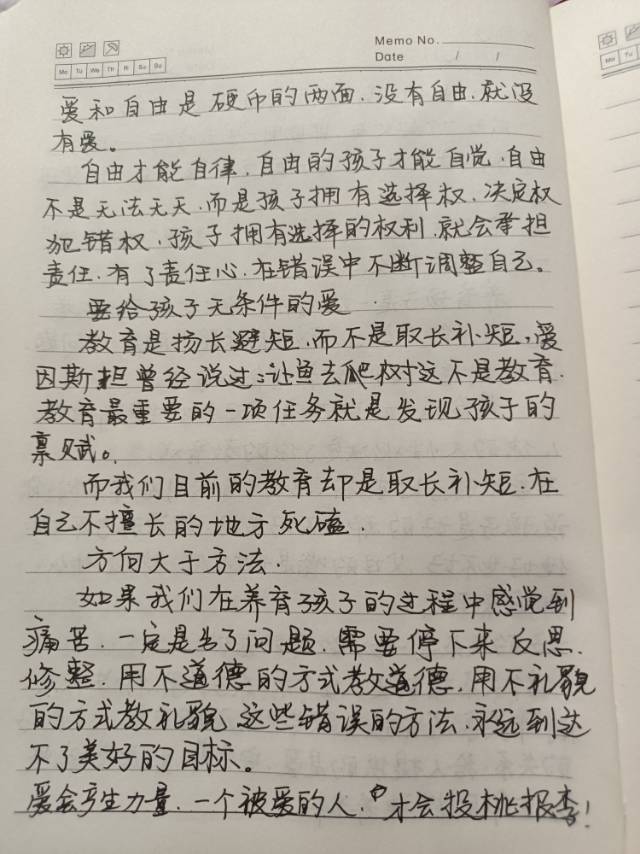 Memo No.
Mo Tu We Th Fr Sa Su
Date / /
爱和自由是硬币的两面.没有自由.就没
有爱。
自由才能自律.自由的孩子才能自觉.自由
不是无法无天.而是孩子拥有选择权.决定权
犯错权.孩子拥有选择的权利.就会承担
责任.有了责任心.在错误中不断调整自己。
要给孩子无条件的爱.
教育是扬长避短.而不是取长补短,爱
因斯担曾经说过:让鱼去爬树这不是教育.
教育最重要的一项任务就是发现孩子的
禀赋。
而我们目前的教育却是取长补短.在
自己不擅长的地方死磕.
方向大于方法.
如果我们在养育孩子的过程中感觉到
痛苦.一定是出了问题.需要停下来反思.
修整.用不道德的方式教道德.用不礼貌
的方式教礼貌.这些错误的方法.永远到达
不了美好的目标。
爱会产生力量.一个被爱的人.才会投桃报李!